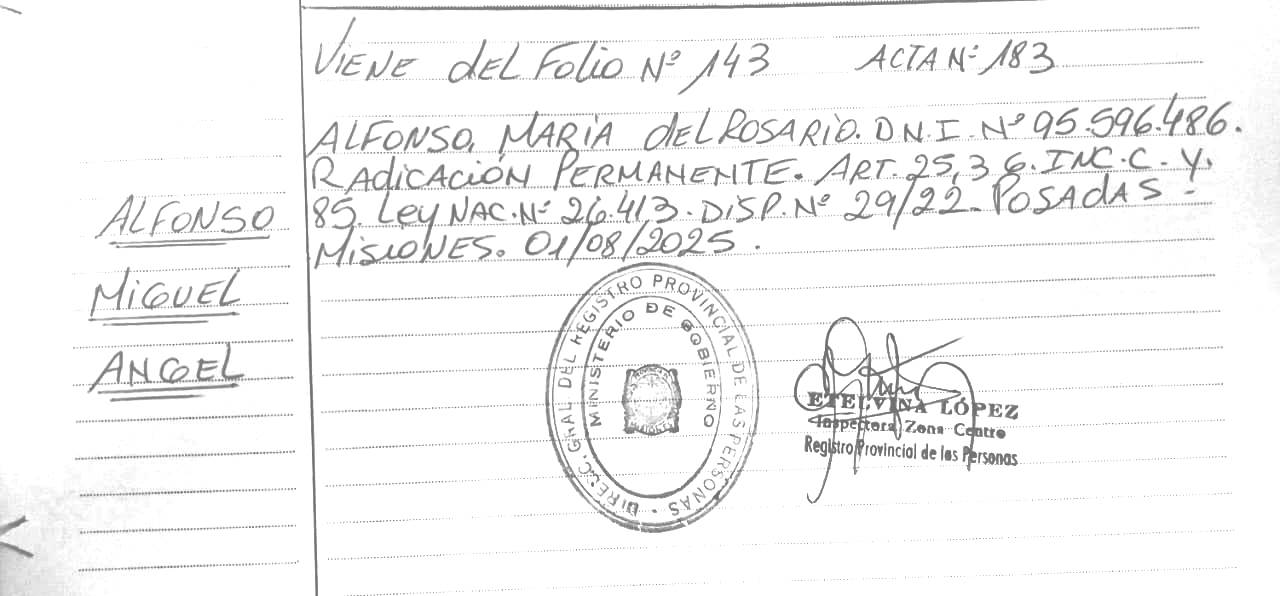 VIENE DEL FOLIO Nº 143 ACTA Nº 183
ALFONSO, MARIA DEL ROSARIO. D.N.I. Nº 95.596.486.
RADICACIÓN PERMANENTE. ART. 25, 36. INC. C. Y.
85. Ley NAC. Nº 26.413. DISP. Nº 29/22. POSADAS -
MISIONES. 01/08/2025.
ALFONSO
MIGUEL
ANGEL
DIREC. GRAL DEL REGISTRO PROVINCIAL DE LAS PERSONAS
MINISTERIO DE GOBIERNO
ETELVINA LÓPEZ
Inspectora Zona Centro
Registro Provincial de las Personas